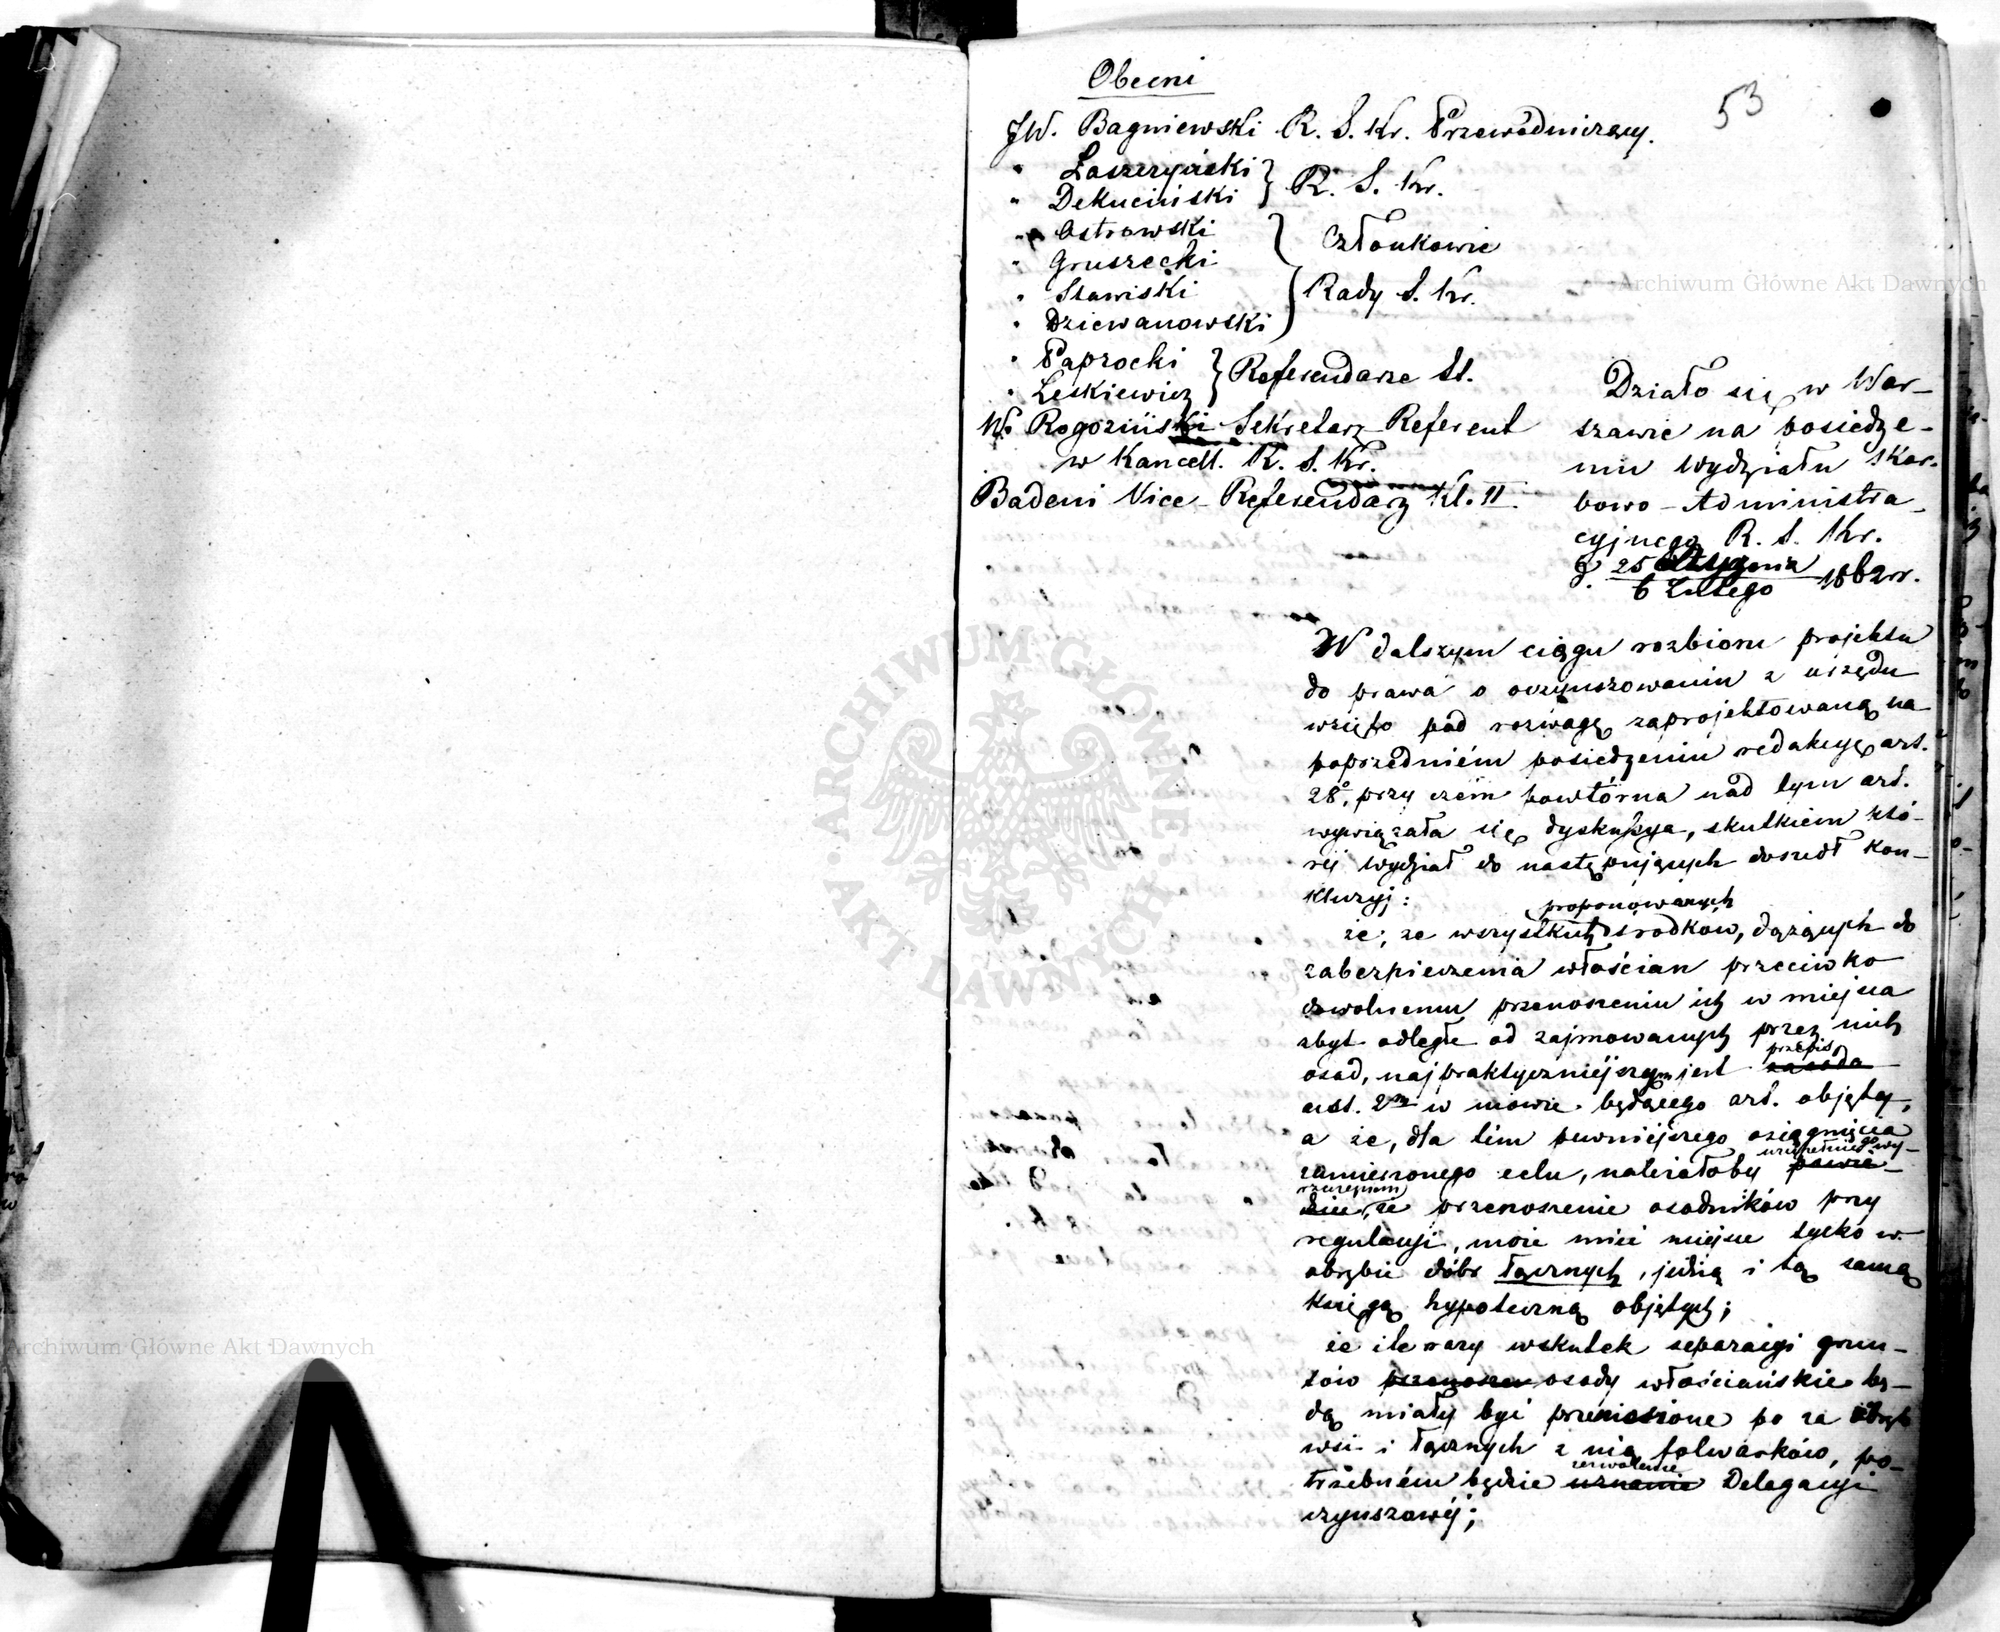 53
Obecni
JW. Bagniewski R. S. Kr. Przewodniczący.
" Łaszczyński } R. S. Kr.
" Dekuciński
" Ostrowski } Członkowie
" Gruszecki
" Stawiski } Rady S. Kr.
" Dziewanowski
" Paprocki } Referendarze St.
" Leskiewicz
W. Rogoziński Sekretarz Referent
w Kancell. R. S. Kr.
Badeni Vice-Referendarz Kl. II.
Działo się w War-
szawie na posiedze-
niu Wydziału Skar-
bowo-Administra-
cyjnego R. S. Kr.
d. 25 Stycznia
6 Lutego 1862 r.
W dalszym ciągu rozbioru projektu
do prawa o oczynszowaniu z urzędu
wzięto pod rozwagę zaprojektowaną na
poprzedniém posiedzeniu redakcyę art.
28°, przy czém powtórna nad tym art.
wywiązała się dyskusya, skutkiem któ-
réj Wydział do następujących doszedł kon-
kluzyj:
proponowanych
że, ze wszystkich środków, dążących do
zabezpieczenia włościan przeciwko
dowolnemu przenoszeniu ich w miejsca
zbyt odległe od zajmowanych przez nich
przepis
osad, najpraktyczniejszym jest zasada
ust. 2m w mowie będącego art. objęty,
a że, dla tém pewniejszego osiągnięcia
uzupełnić go wy-
zamierzonego celu, należałoby powie-
rzeczeniem
dzieć, że przenoszenie osadników przy
regulacyi, może mieć miejsce tylko w
obrębie dóbr łącznych, jedną i tą samą
księgą hypoteczną objętych;
że ile razy wskutek separacyi grun-
tów przenoszen osady włościańskie bę-
dą miały być przeniesione po za obręb
wsi i łącznych z nią folwarków, po-
zezwolenie
trzebném będzie uznanie Delegacyi
czynszowéj;
Archiwum Główne Akt Dawnych
Archiwum Główne Akt Dawnych
ARCHIWUM GŁÓWNE AKT DAWNYCH